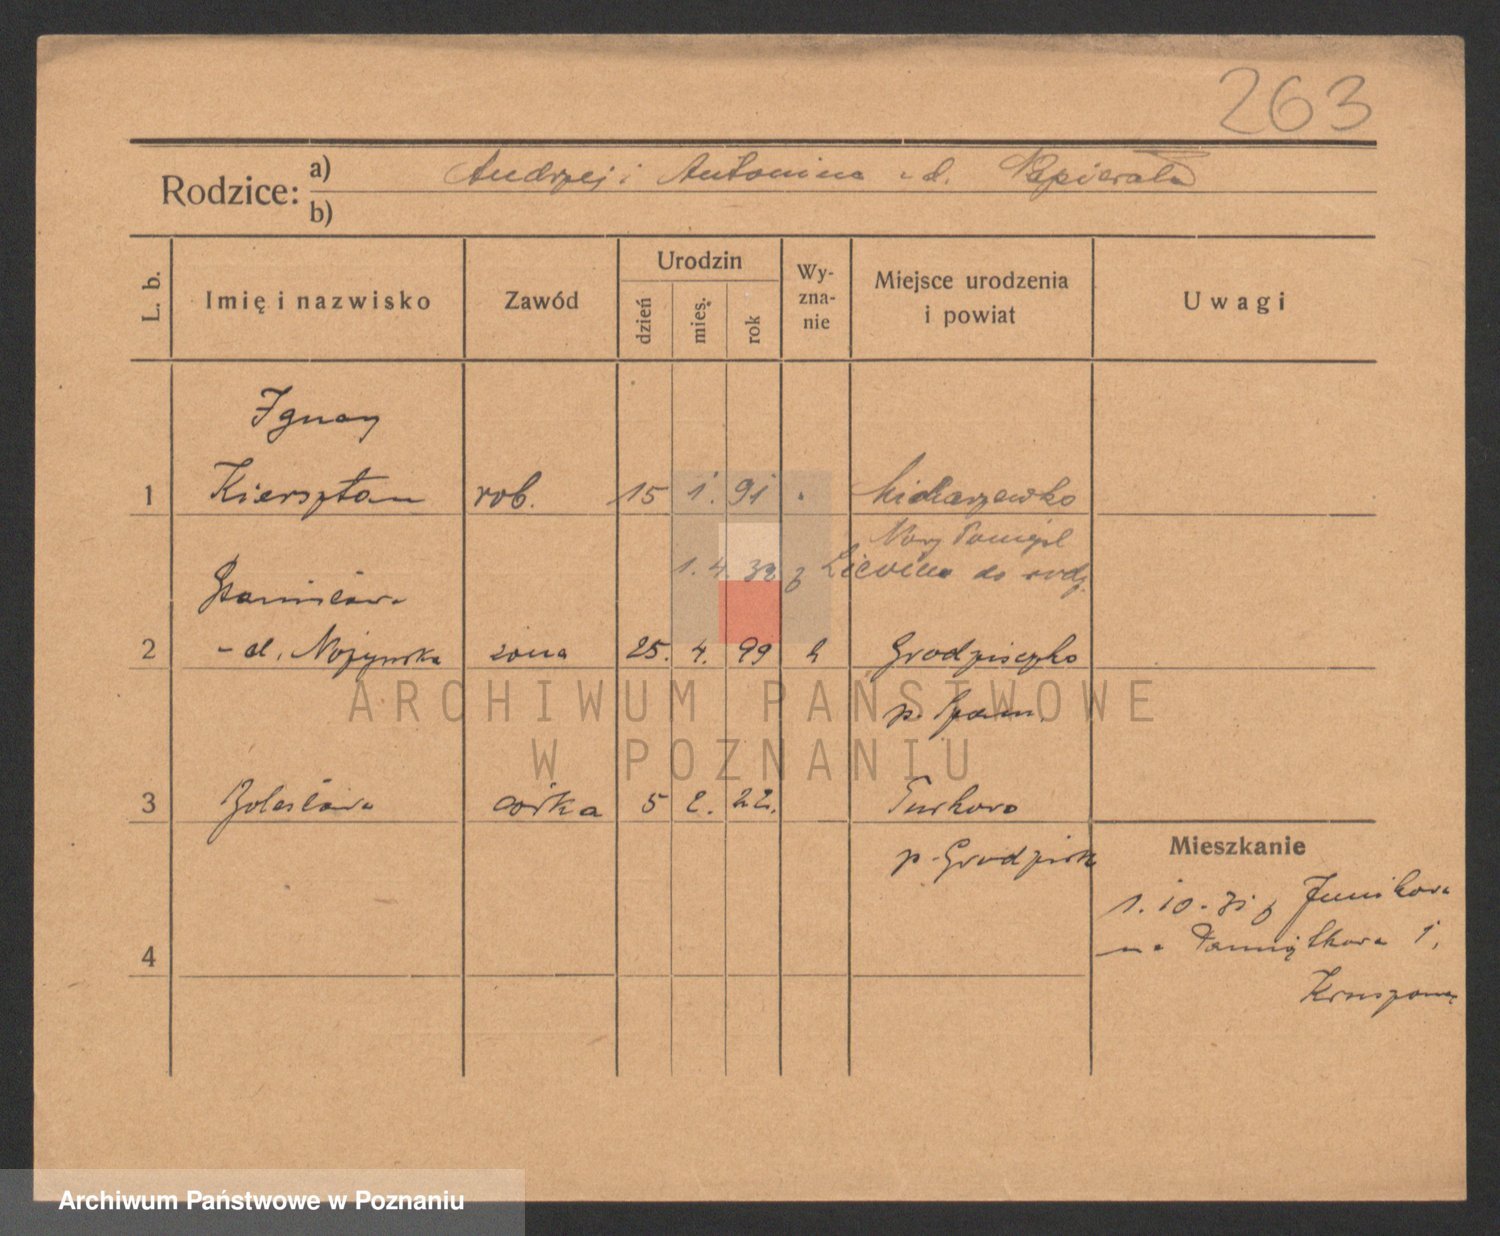 263
Rodzice: a) Andrzej i Antonina z d. Papierała
b)
L. b. Imię i nazwisko Zawód Urodzin dzień mies. rok Wyznanie Miejsce urodzenia i powiat Uwagi
Ignacy
1 Kiersztan rob. 15 1. 91
Nowy Tomyśl
1. 4. 32 z do rodz.
Stanisława
2 - d. Nożyńska żona 25. 4. 99 Grodziszczko
p. Szam.
3 Bolesława córka 5 2. 22. Turkowo
p. Grodzisk
Mieszkanie
1. 10. 31 z Junikowa
na Pamiątkowa 1,
4
ARCHIWUM PAŃSTWOWE
W POZNANIU
Archiwum Państwowe w Poznaniu